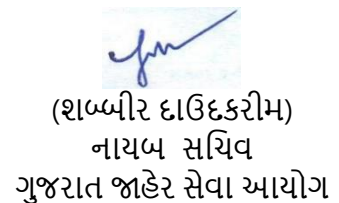 (શબ્બીર દાઉદકરીમ)
નાયબ સચિવ
ગુજરાત જાહેર સેવા આયોગ